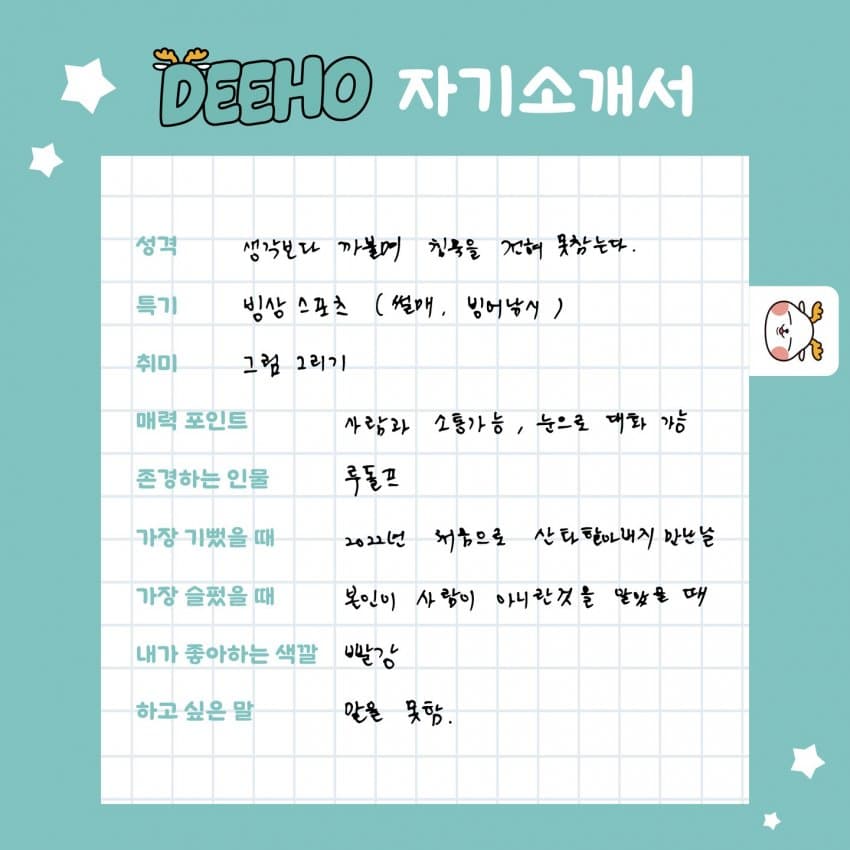 DEEHO 자기소개서
성격 생각보다 까불며 침묵을 전혀 못참는다.
특기 빙상 스포츠 (썰매, 빙어낚시)
취미 그림 그리기
매력 포인트 사람과 소통가능, 눈으로 대화 가능
존경하는 인물 루돌프
가장 기뻤을 때 2022년 처음으로 산타할아버지 만난날
가장 슬펐을 때 본인이 사람이 아니란것을 알았을 때
내가 좋아하는 색깔 빨강
하고 싶은 말 말을 못함.